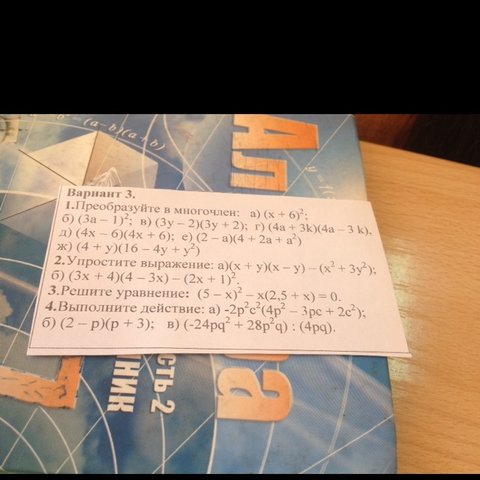 (a−b)(a+b)
Ал
ра
СТЬ 2
Вариант 3.
1.Преобразуйте в многочлен: а) (x + 6)²;
б) (3a − 1)²; в) (3y − 2)(3y + 2); г) (4a + 3k)(4a − 3 k).
д) (4x − 6)(4x + 6); е) (2 − a)(4 + 2a + a²)
ж) (4 + y)(16 − 4y + y²)
2.Упростите выражение: а)(x + y)(x − y) − (x² + 3y²);
б) (3x + 4)(4 − 3x) − (2x + 1)².
3.Решите уравнение: (5 − x)² − x(2,5 + x) = 0.
4.Выполните действие: а) -2p²c²(4p² − 3pc + 2c²);
б) (2 − p)(p + 3); в) (-24pq² + 28p²q) : (4pq).